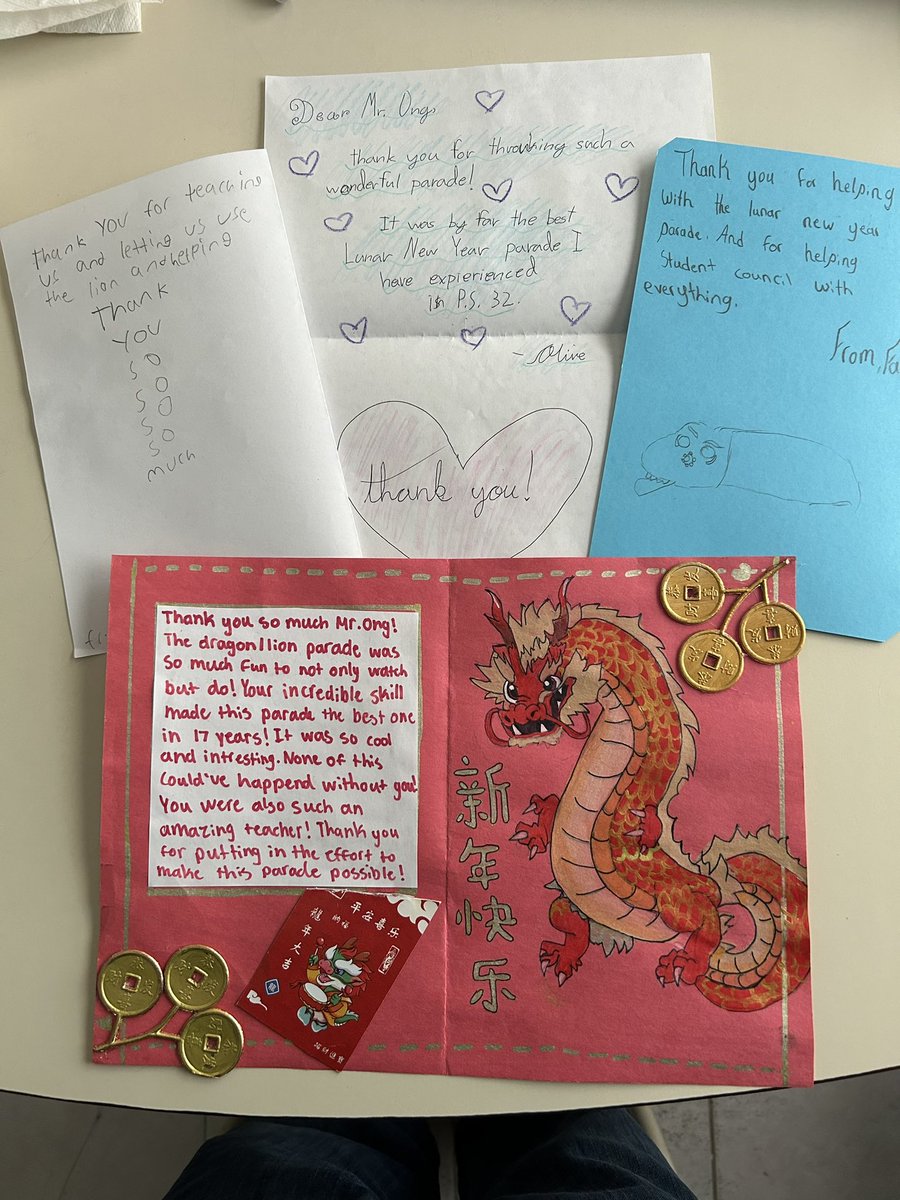 thank you for teaching
us and letting us use
the lion and helping
Thank
you
so
so
so
so
much
Dear Mr. Ong,
thank you for throwing such a
wonderful parade!
It was by far the best
Lunar New Year parade I
have expierienced
in P.S. 32.
- Olive
thank you!
Thank you for helping
with the lunar new year
parade. And for helping
Student council with
everything.
From, Fa
Thank you so much Mr.Ong!
The dragon/lion parade was
so much fun to not only watch
but do! Your incredible skill
made this parade the best one
in 17 years! It was so cool
and intresting. None of this
could've happend without you!
You were also such an
amazing teacher! Thank you
for putting in the effort to
make this parade possible!
新年快乐
平谷喜乐
龍年大吉